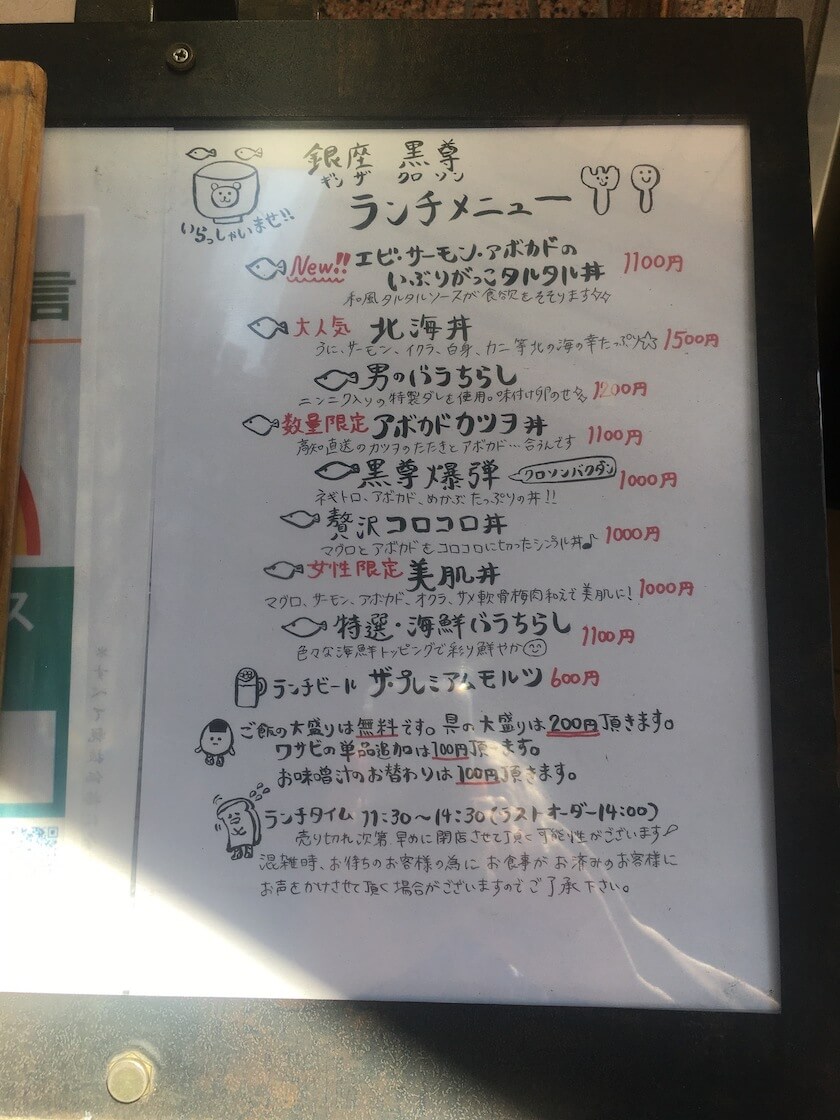 銀座 黒尊
ギンザ クロソン
ランチメニュー
いらっしゃいませ!!
New!! エビ・サーモン・アボカドの
いぶりがっこタルタル丼 1100円
和風タルタルソースが食欲をそそります☆☆
大人気 北海丼 1500円
うに、サーモン、イクラ、白身、カニ等北の海の幸たっぷり☆
男のバラちらし 1200円
ニンニク入りの特製ダレを使用。味付け卵のせ☆
数量限定 アボカドカツヲ丼 1100円
高知直送のカツヲのたたきとアボカド…合うんです
黒尊爆弾 クロソンバクダン 1000円
ネギトロ、アボカド、めかぶたっぷりの丼!!
贅沢コロコロ丼 1000円
マグロとアボカドをコロコロに切ったシンプル丼♪
女性限定 美肌丼 1000円
マグロ、サーモン、アボカド、オクラ、サメ軟骨梅肉和えで美肌に!
特選・海鮮バラちらし 1100円
色々な海鮮トッピングで彩り鮮やか
ランチビール ザ・プレミアムモルツ 600円
ご飯の大盛りは無料です。具の大盛りは200円頂きます。
ワサビの単品追加は100円頂きます。
お味噌汁のお替わりは100円頂きます。
ランチタイム 11:30〜14:30(ラストオーダー14:00)
売り切れ次第、早めに閉店させて頂く可能性がございます
混雑時、お待ちのお客様の為にお食事がお済みのお客様に
お声をかけさせて頂く場合がございますのでご了承下さい。
言
ス